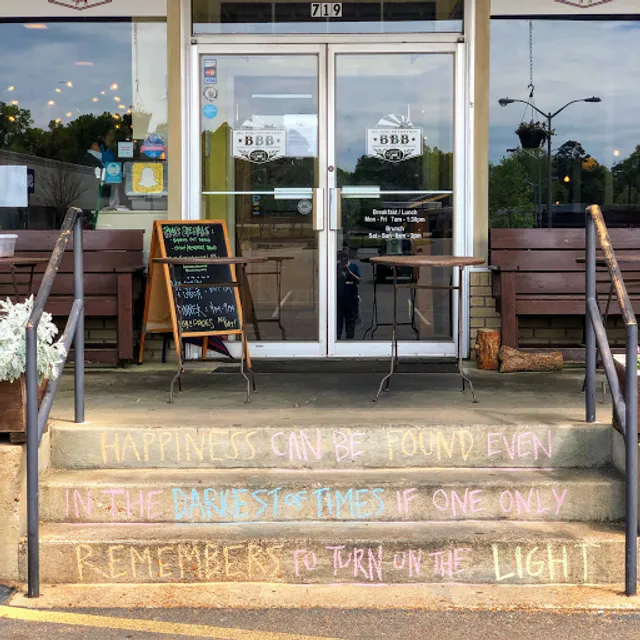 719
BBB
BBB
Breakfast / Lunch
Mon - Fri 7am - 1:30pm
Brunch
Sat - Sun 8am - 2pm
HAPPINESS CAN BE FOUND EVEN
IN THE DARKEST OF TIMES IF ONE ONLY
REMEMBERS TO TURN ON THE LIGHT